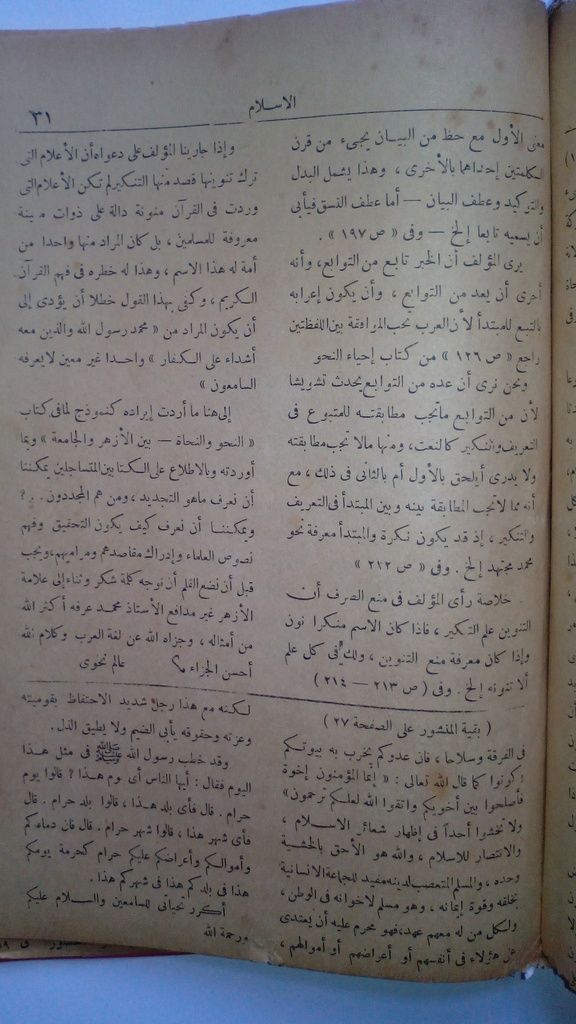 الاسلام
٣١
معنى الأول مع حظ من البيان يجىء من قرن
الكلمتين إحداهما بالأخرى ، وهذا يشمل البدل
والتوكيد وعطف البيان — أما عطف النسق فيأبى
أن يسميه تابعا إلخ — وفى « ص ١٩٧ » .
يرى المؤلف أن الخبر تابع من التوابع، وأنه
أحرى أن يعد من التوابع ، وأن يكون إعرابه
بالتبع للمبتدأ لأن العرب تحب الموافقة بين اللفظتين
راجع « ص ١٢٦ » من كتاب إحياء النحو
ونحن نرى أن عده من التوابع يحدث تشويشا
لأن من التوابع ماتجب مطابقته للمتبوع فى
التعريف والتنكير كالنعت، ومنها مالا تجب مطابقته
ولا يدرى أيلحق بالأول أم بالثانى فى ذلك ، مع
أنه مما لاتجب المطابقة بينه وبين المبتدأ فى التعريف
والتنكير ، إذ قد يكون نكرة والمبتدأ معرفة نحو
محمد مجتهد إلخ . وفى « ص ٢١٢ »
خلاصة رأى المؤلف فى منع الصرف أن
التنوين علم التنكير ، فاذا كان الاسم منكرا نون
وإذا كان معرفة منع التنوين ، ولك فى كل علم
ألا تنونه إلخ . وفى ( ص ٢١٣ — ٢١٤ )
وإذا جارينا المؤلف على دعواه أن الأعلام التى
ترك تنوينها قصد منها التنكير لم تكن الأعلام التى
وردت فى القرآن منونة دالة على ذوات معينة
معروفة للمسلمين ، بل كان المراد منها واحدا من
أمة له هذا الاسم ، وهذا له خطره فى فهم القرآن
الكريم ، وكفى بهذا القول خطلا أن يؤدى إلى
أن يكون المراد من « محمد رسول الله والذين معه
أشداء على الكفار » واحدا غير معين لايعرفه
السامعون »
إلى هنا ما أردت إيراده كنموذج لما فى كتاب
« النحو والنحاة — بين الأزهر والجامعة » وبما
أوردته وبالاطلاع على الكتابين المتساجلين يمكننا
أن نعرف ماهو التجديد ، ومن هم المجددون . . ؟
ويمكننا أن نعرف كيف يكون التحقيق وفهم
نصوص العلماء وإدراك مقاصدهم ومراميهم، ويجب
قبل أن نضع القلم أن نوجه كلمة شكر وثناء إلى علامة
الأزهر غير مدافع الأستاذ محمد عرفه أكثر الله
من أمثاله ، وجزاه الله عن لغة العرب وكلام الله
أحسن الجزاء
عالم نحوى
( بقية المنشور على الصفحة ٢٧ )
فى الفرقة وسلاحا ، فان عدوكم يخرب به بيوتكم
وكونوا كما قال الله تعالى : « إنما المؤمنون إخوة
فأصلحوا بين أخويكم واتقوا الله لعلكم ترحمون»
ولا تخشوا أحداً فى إظهار شعائر الاسلام ،
والانتصار للاسلام ، والله هو الأحق بالخشية
وحده ، والمسلم المتعصب لدينه مفيد للجماعة الانسانية
بخلقه وقوة إيمانه ، وهو مسلم لاخوانه فى الوطن ،
ولكل من له معهم عهد، فهو محرم عليه أن يعتدى
على هؤلاء فى أنفسهم أو أعراضهم أو أموالهم ،
لكنه مع هذا رجل شديد الاحتفاظ بقوميته
وعزته وحقوقه يأبى الضيم ولا يطيق الذل .
وقد خطب رسول الله ﷺ فى مثل هذا
اليوم فقال : أيها الناس أى يوم هذا ? قالوا يوم
حرام . قال فأى بلد هذا ، قالوا بلد حرام . قال
فأى شهر هذا ، قالوا شهر حرام . قال فان دماءكم
وأموالكم وأعراضكم عليكم حرام كحرمة يومكم
هذا فى بلدكم هذا فى شهركم هذا .
أكرر تحياتى للسامعين والسلام عليكم
ورحمة الله